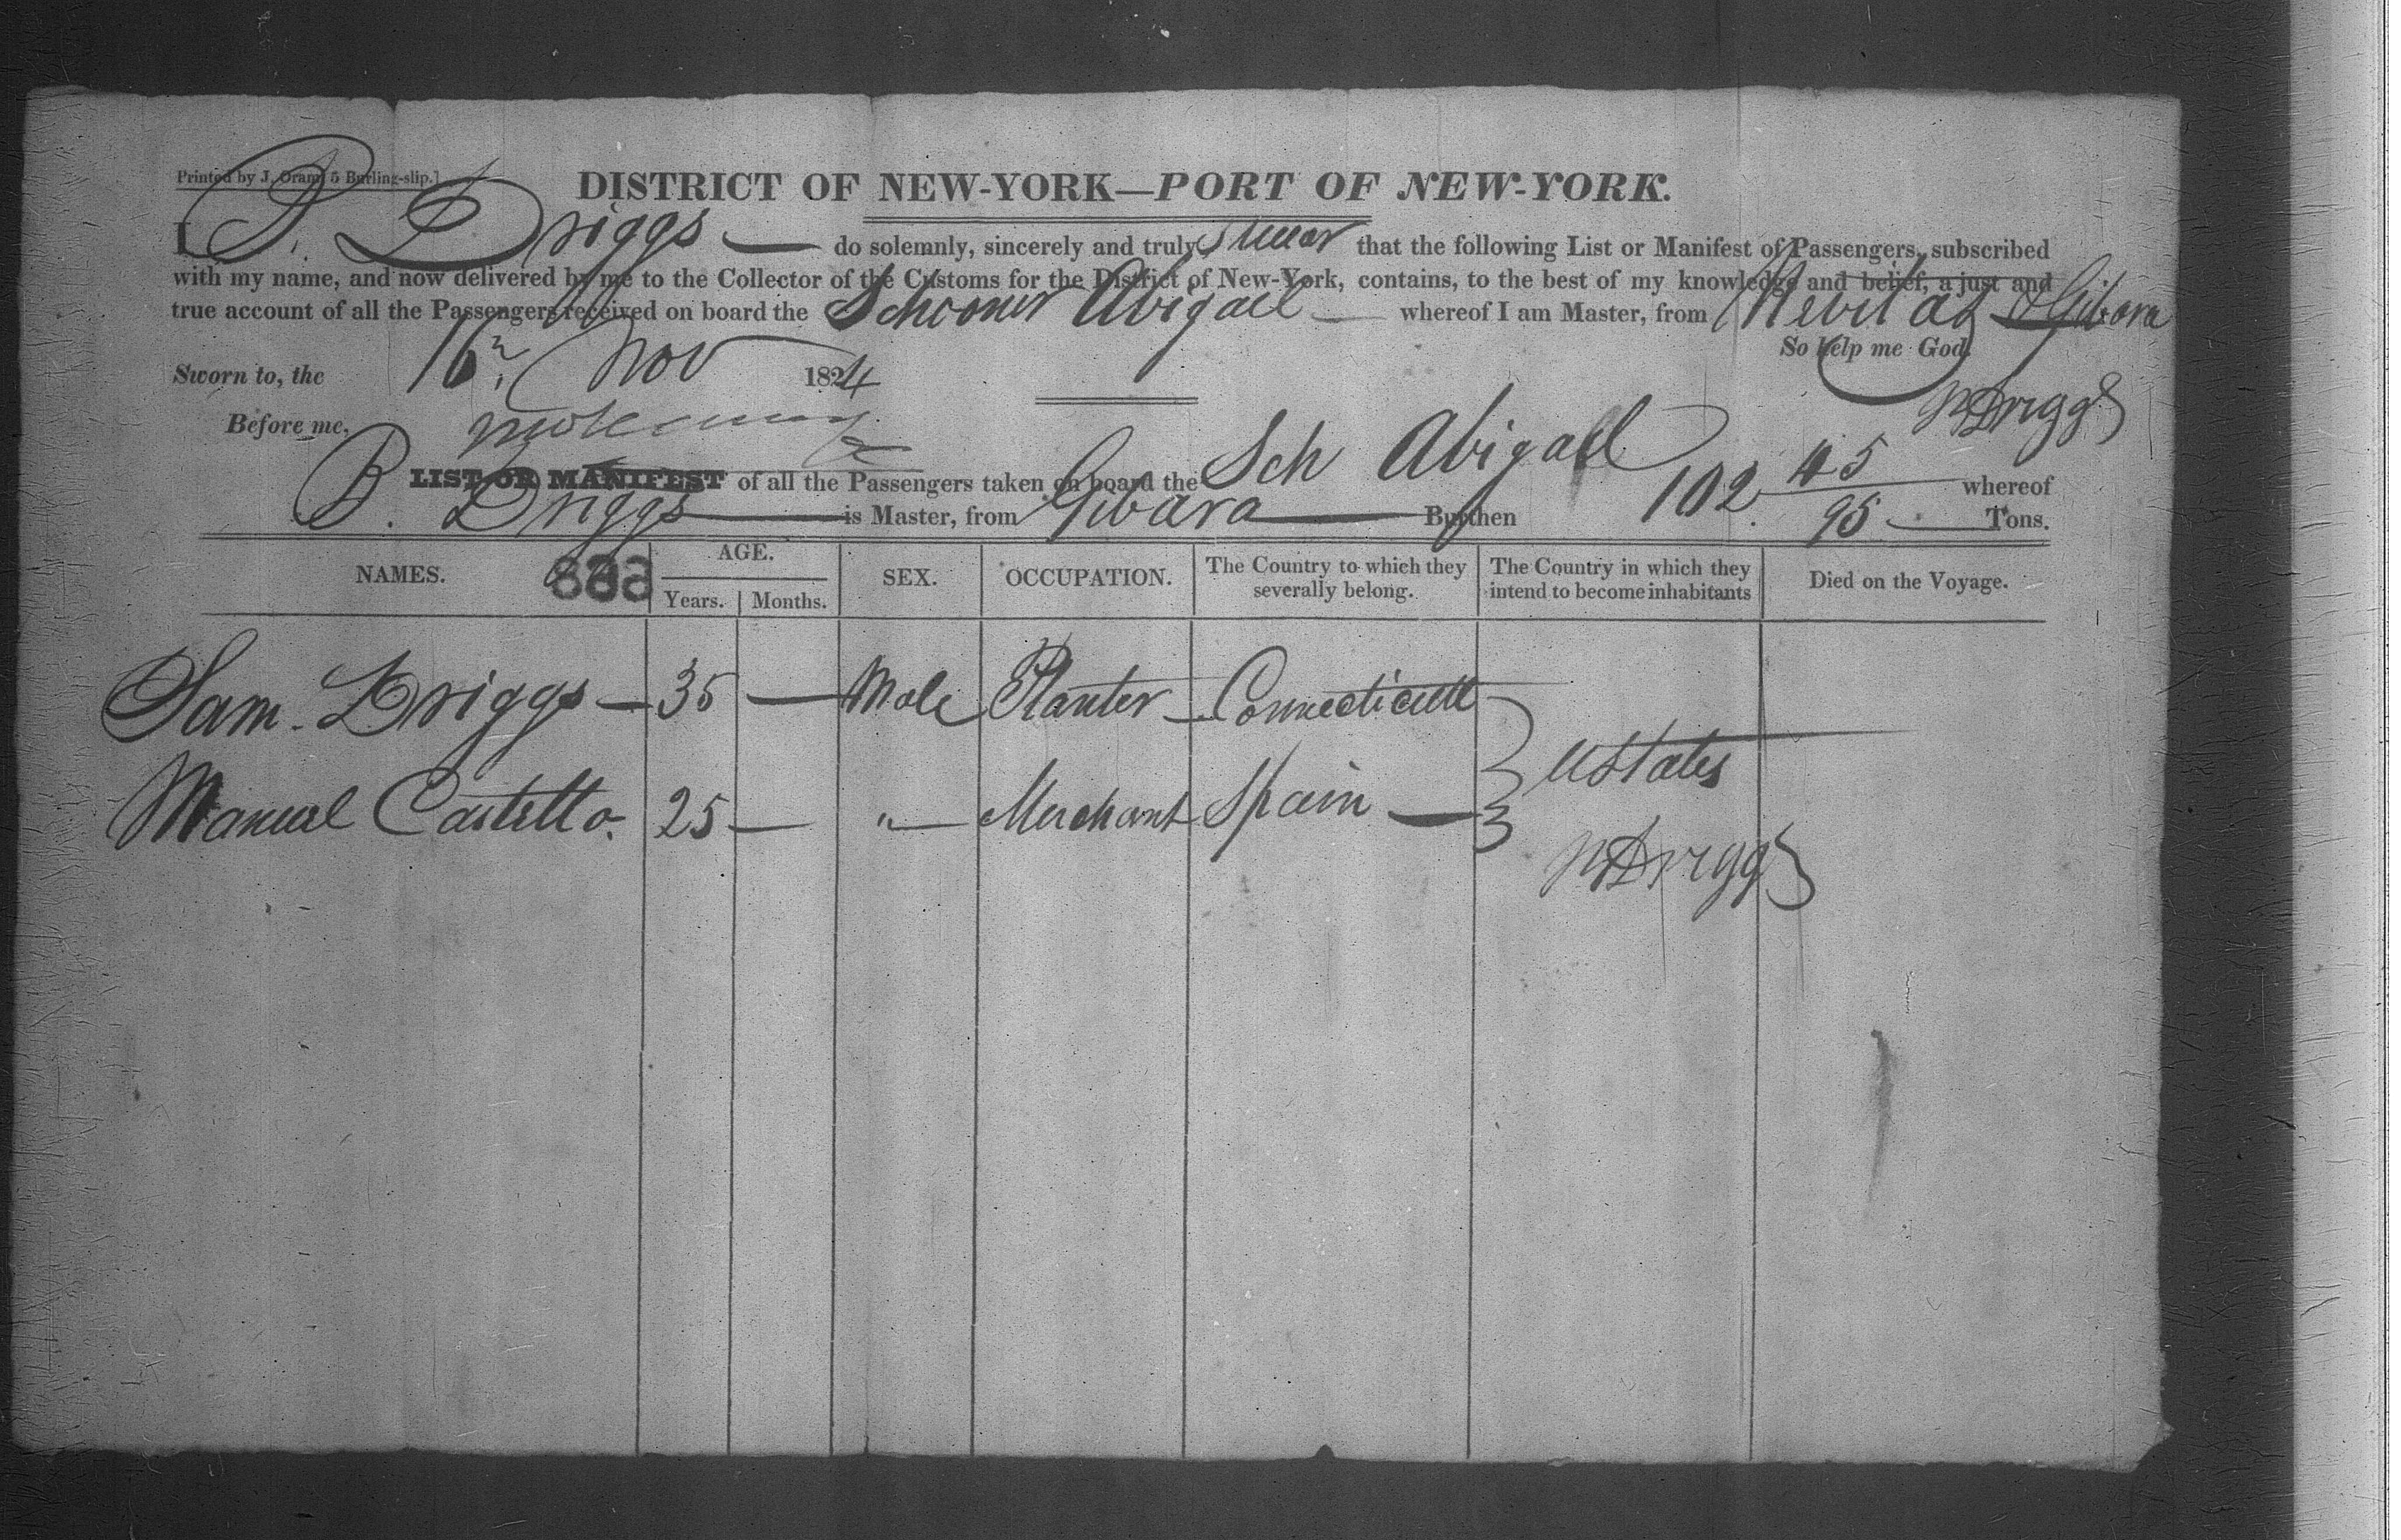 Printed by J. Oram, 5 Burling-slip.]
DISTRICT OF NEW-YORK—PORT OF NEW-YORK.
I Driggs — do solemnly, sincerely and truly Swear that the following List or Manifest of Passengers, subscribed
with my name, and now delivered by me to the Collector of the Customs for the District of New-York, contains, to the best of my knowledge and belief, a just and
true account of all the Passengers received on board the Schooner Abigail — whereof I am Master, from & Gibara
So help me God.
Sworn to, the 16 Nov 1824
Driggs
Before me,
LIST OR MANIFEST of all the Passengers taken on board the Sch Abigail whereof
B. Driggs — is Master, from Gibara — Burthen 102 45/95 — Tons.
NAMES. AGE. SEX. OCCUPATION. The Country to which they severally belong. The Country in which they intend to become inhabitants Died on the Voyage.
Years. Months.
Sam. Driggs — 35 — Male Planter — Connecticutt
UStates
Manual Castello. 25 — " — Merchant Spain —
Driggs